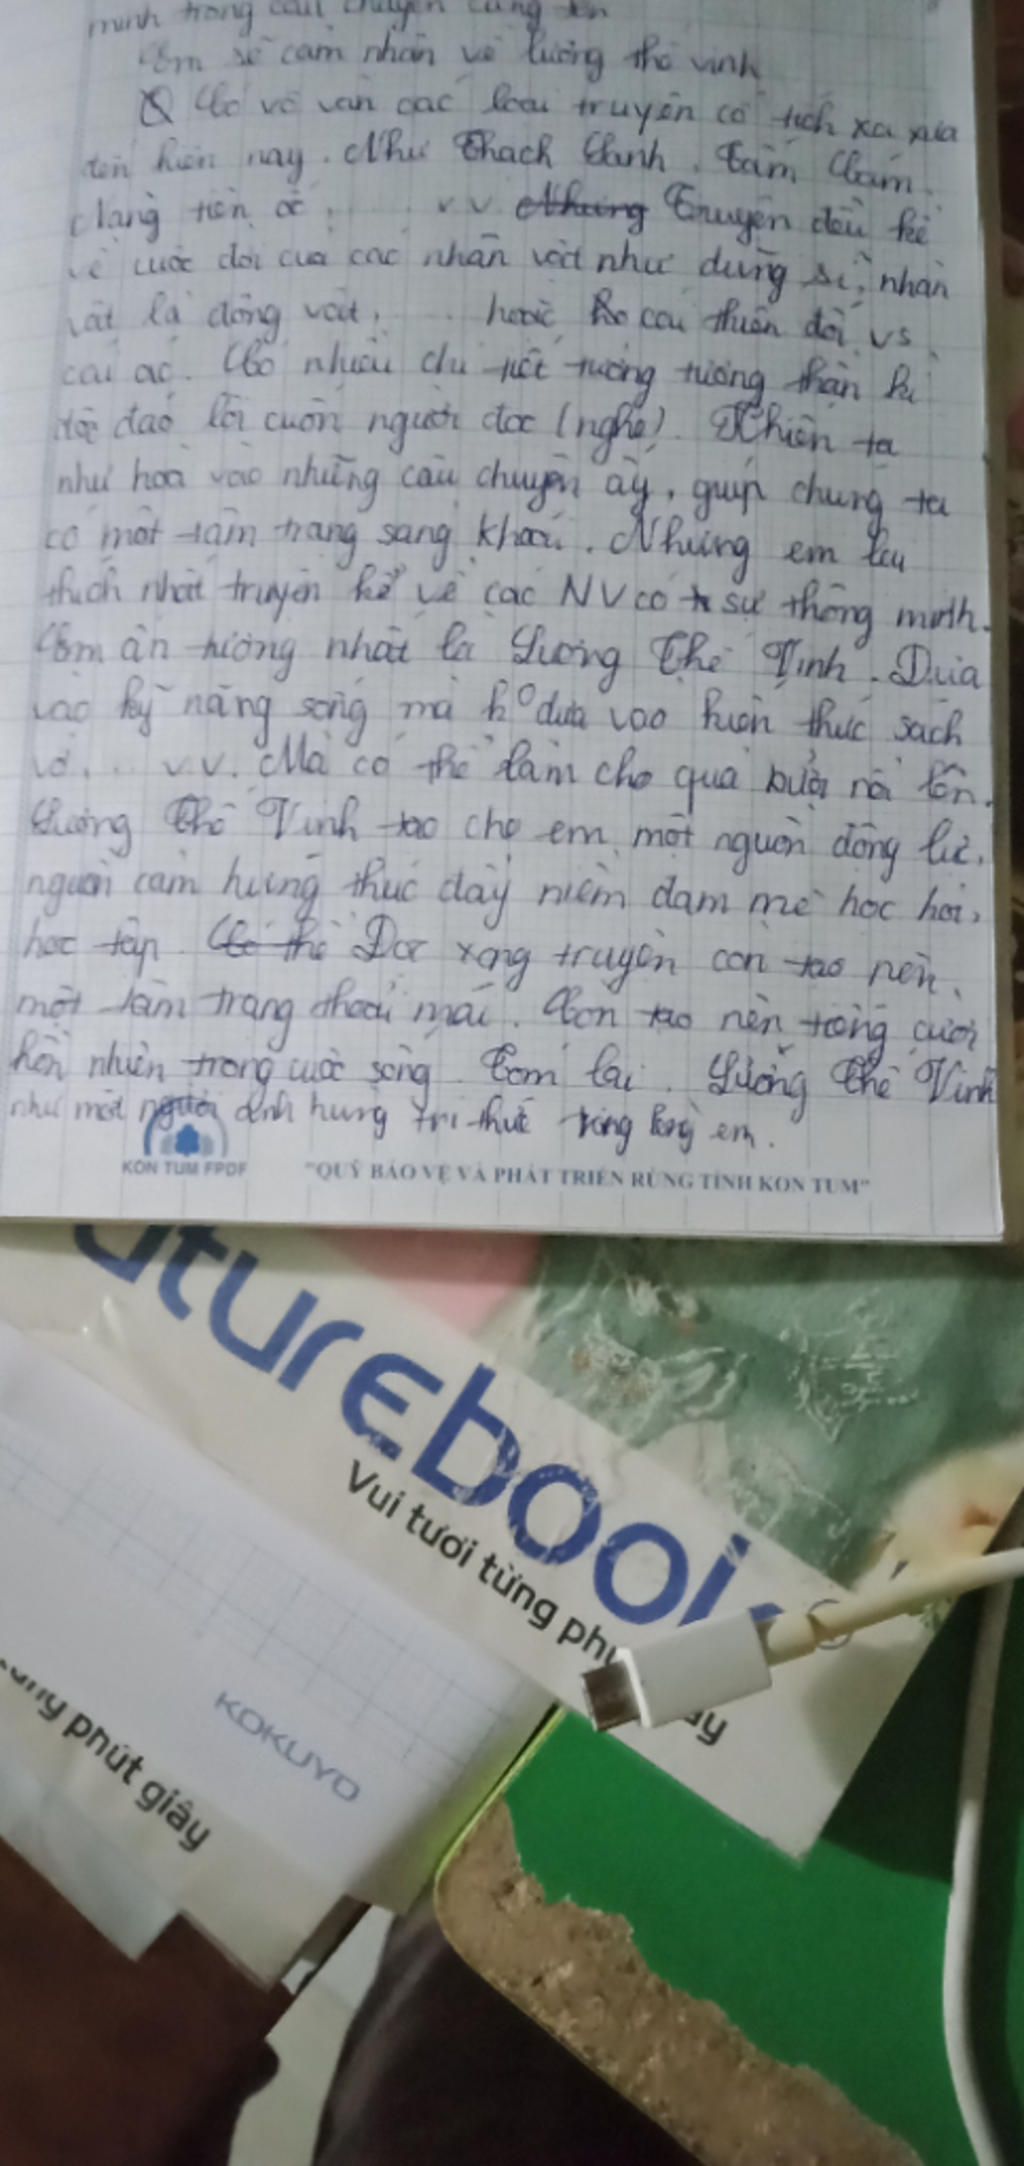 minh trong câu chuyện cùng tên
Em sẽ cảm nhận về lương thế vinh
Có vô vàn các loại truyện cổ tích xa xưa
đến hiện nay. Như Thạch Sanh, Tấm Cám,
Nàng tiên ốc, ... v.v Những Truyện đều kể
về cuộc đời của các nhân vật như dũng sĩ, nhân
vật là động vật, ... hoặc là cái thiện đối vs
cái ác. Có nhiều chi tiết tưởng tượng thần kì
độc đáo lôi cuốn người đọc (nghe). Khiến ta
như hoà vào những câu chuyện ấy, giúp chúng ta
có một tâm trạng sảng khoái. Nhưng em lại
thích nhất truyện kể về các NV có sự thông minh.
Em ấn tượng nhất là Lương Thế Vinh. Dựa
vào kỹ năng sống mà k° dựa vào kiến thức sách
vở... v.v. Mà có thể làm cho quả bưởi nổi lên.
Lương Thế Vinh tạo cho em một nguồn động lực,
nguồn cảm hứng thúc đẩy niềm đam mê học hỏi,
học tập. Có thể Đọc xong truyện còn tạo nên
một tâm trạng thoải mái. Còn tạo nên tiếng cười
hồn nhiên trong cuộc sống. Tóm lại. Lương Thế Vinh
như một người anh hùng tri thức trong lòng em.
KON TUM FPDF "QUỸ BẢO VỆ VÀ PHÁT TRIỂN RỪNG TỈNH KON TUM"
turebook
Vui tươi từng phú
ây
KOKUYO
phút giây